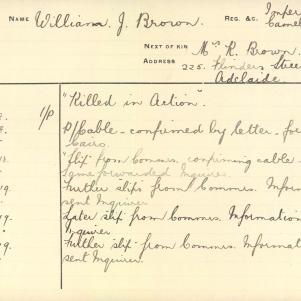 NAME William J. Brown. REG. &C. Imper
Camel
NEXT OF KIN Mrs R. Brown.
ADDRESS 225. Flinders Stree
Adelaide.
1/P "Killed in Action".
P/Cable - confirmed by letter - for
Cairo.
"Slip" from Commrs. confirming cable -
Same forwarded Inquirer.
19. Further slip from Commrs. Informat
sent Inquirer
Later slip from Commrs. Information
Inquirer
19. Further slip from Commrs. Informat
sent Inquirer.